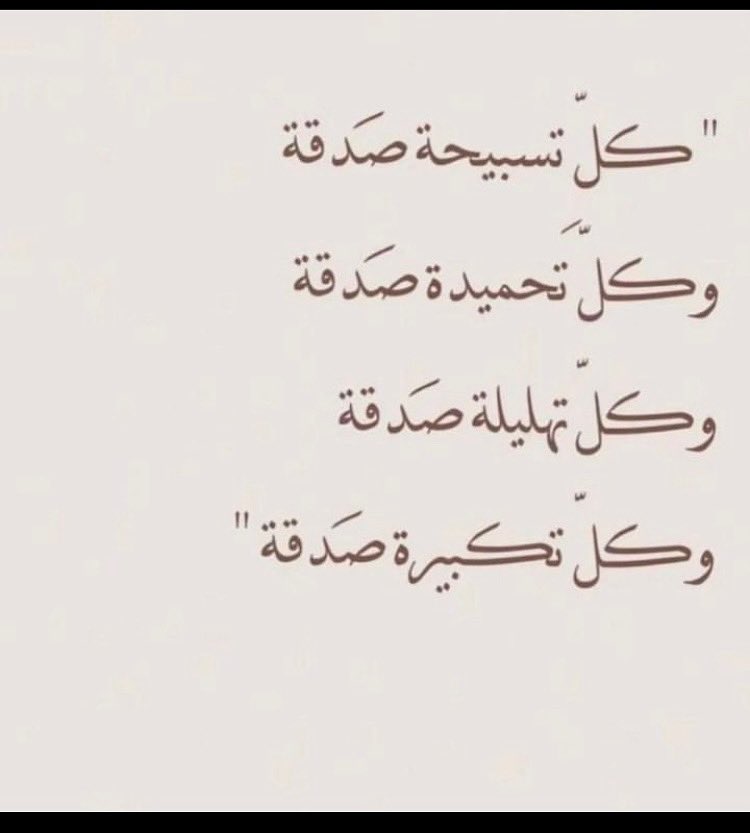 "كلّ تسبيحة صَدقة
وكلّ تَحميدة صَدقة
وكلّ تهليلة صَدقة
وكلّ تكبيرة صَدقة"